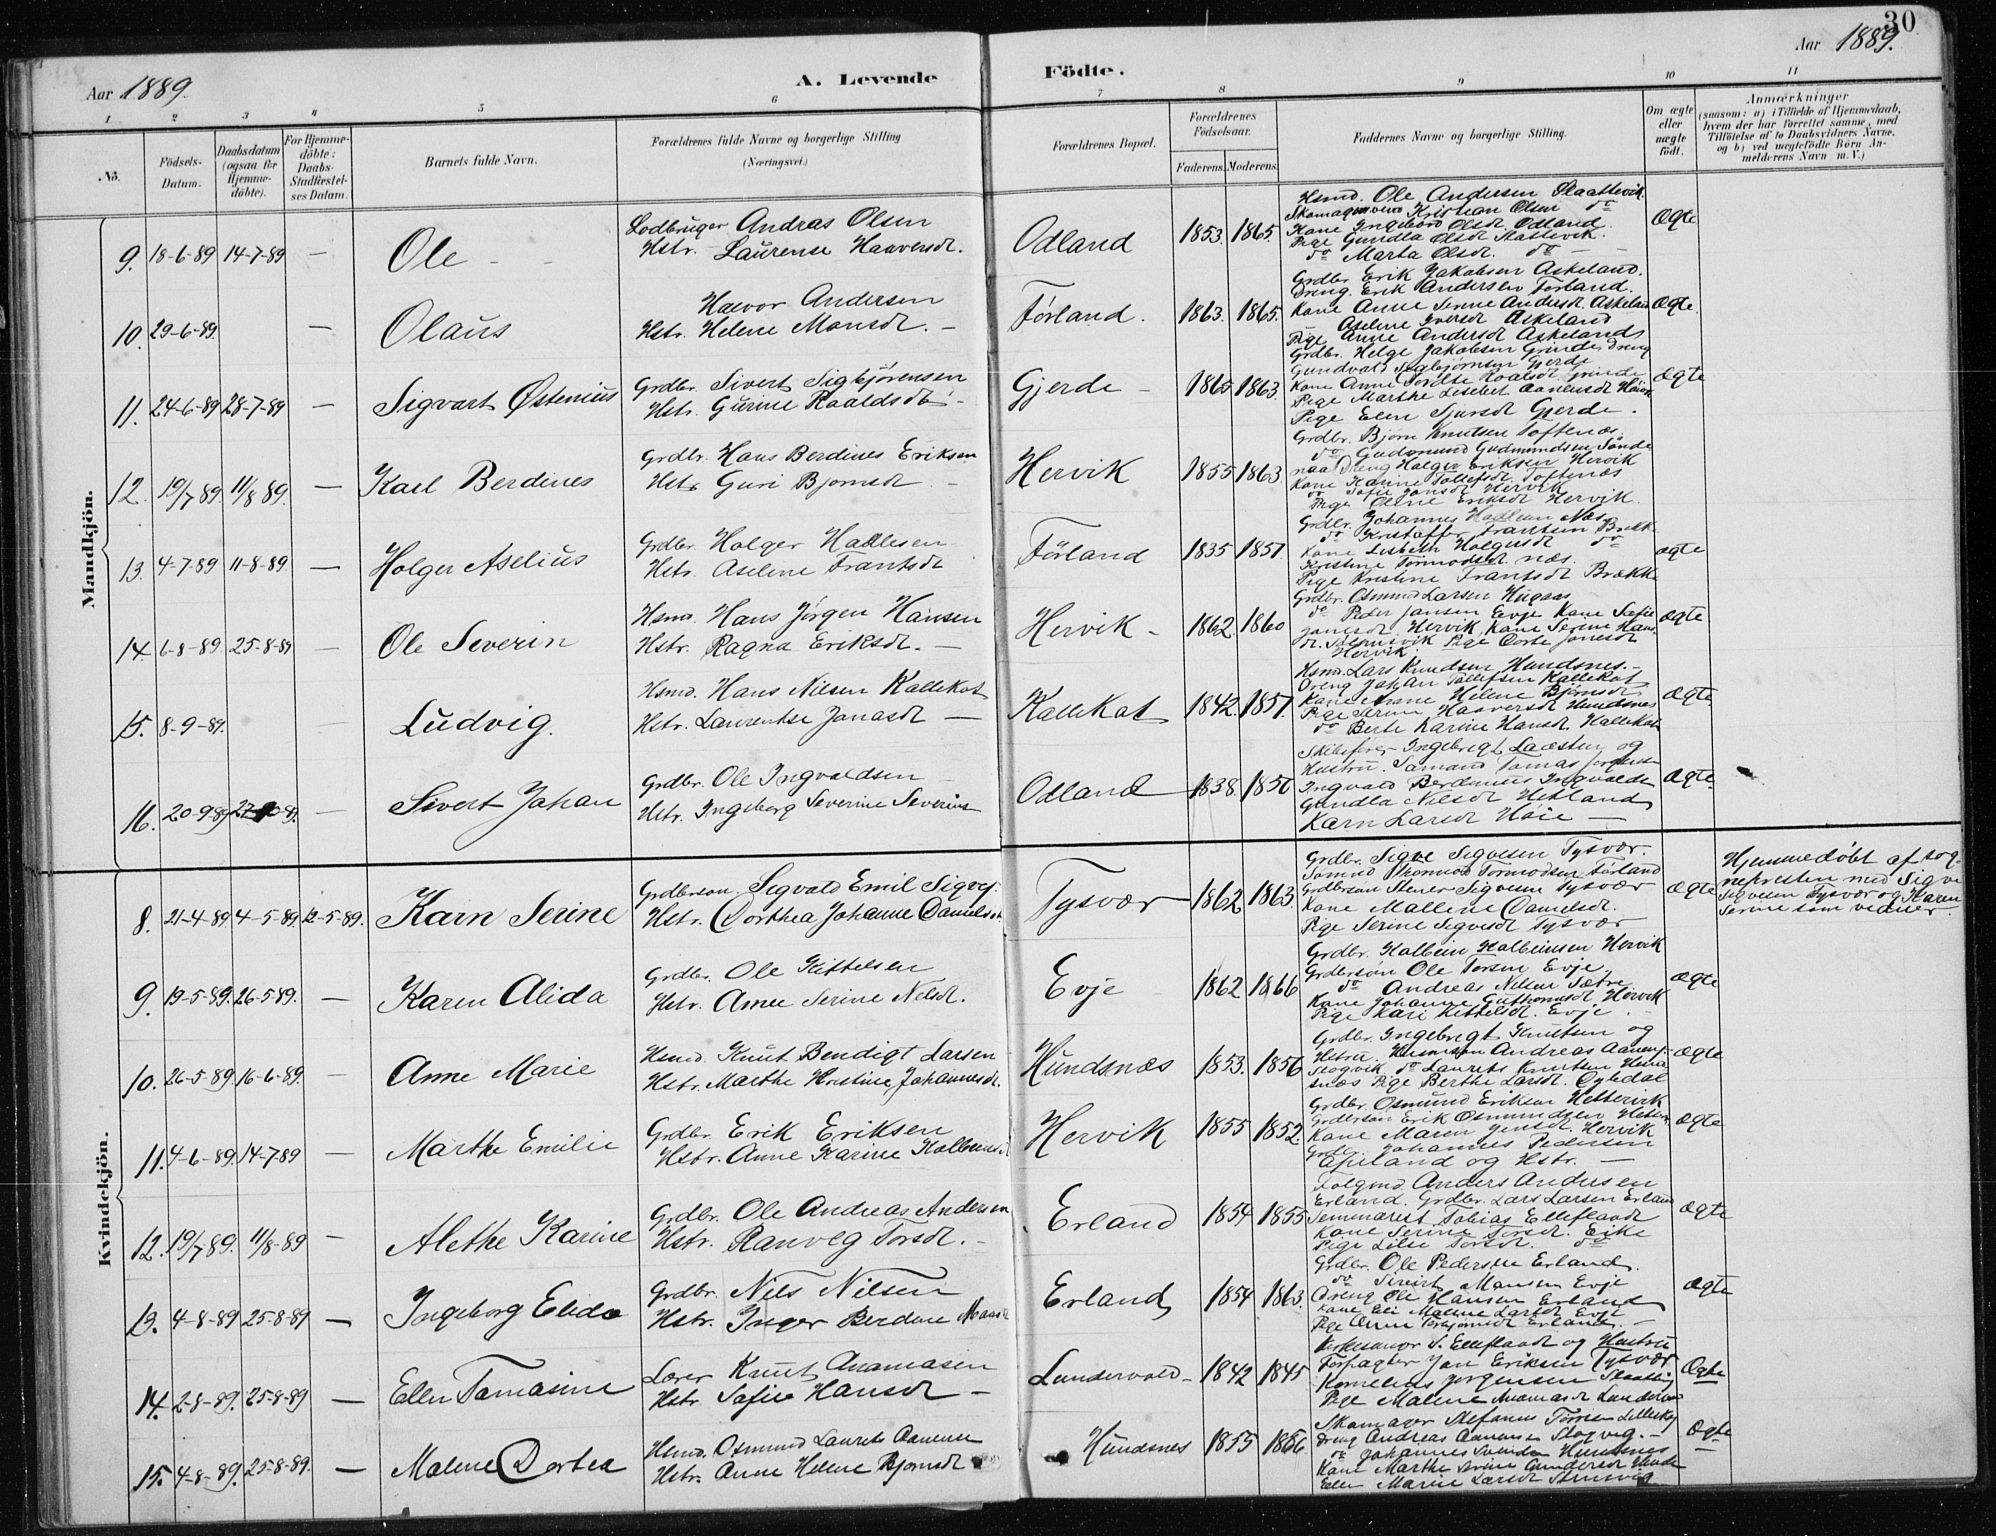 30
Aar 1889.
A. Levende Födte.
Aar 1889.
1 2 3 4 5 6 7 8 9 10 11
No.
Födsels-Datum.
Daabsdatum (ogsaa for Hjemme-döbte).
For Hjemme-döbte: Daabs-Stadfæstel-ses Datum.
Barnets fulde Navn.
Forældrenes fulde Navne og borgerlige Stilling
(Næringsvei.)
Forældrenes Bopæl.
Forældrenes Födselsaar.
Faderens. Moderens.
Faddernes Navne og borgerlige Stilling.
Om ægte eller uægte födt.
Anmærkninger
(saasom: a) i Tilfælde af Hjemmedaab, hvem der har forrettet samme, med Tilföielse af to Daabsvidners Navne, og b) ved uægtefödte Börn An-melderens Navn m. V.)
Mandkjön.
9. 18-6-89 14-7-89 — Ole
Andras Olsen
Hstr. Laurense Haaversdt.
Odland 1853. 1865.
Hsmd. Ole Andersen
Kristian Olsen do
Kone Ingebord Olsdt. Odland.
Pige Gundla Olsdt
do Marta Olsdt. do
Ægte
10. 29-6-89. — Olaus
Halvor Andersen
Hstr. Helene Monsdt. —
Förland. 1863. 1865.
Grdbr. Erik Jakobsen Askeland.
Dreng. Erik Andersen Förland.
Kone Anne Serine Andersdt Askeland
Aselene Iversdt Askeland
Pige Anne Andersdt Askeland
Ægte.
11. 24-6-89 28-7-89 — Sigvart Østenius
Grdbr. Sivert Sigbjörensen
Hstr. Gurine Roaldsdt.
Gjerde — 1865 1863.
Grdbr. Helge Jakobsen Grinde, Dreng
Gundvald Sigbjørnsen Gjerde
Kone Anne Roaldsdt Grinde
Pige Marthe Lisebet
Pige Elen Sjursdt Gjerde.
Ægte
12. 19/7 89. 11/8 89. — Karl Berdines
Grdbr. Hans Berdines Eriksen
Hstr Guri Bjornsdt —
Hervik 1855 1863.
Grdbr. Bjørn Knutsen Toftenæs.
do Gudmund Gudmundsen Sönde
naa Dreng Holger Eriksen Hervik
Kone Tollefsdt Toftenæs
do Sofie Jansdt Hervik
Pige Oline Eriksdt Hervik.
13. 4-7-89 11-8-89 — Holger Aselius
Grdbr. Holger Hallesen
Hstr. Aselene Frantsdt
Förland 1835 1851.
Grdbr. Johannes Næs
do Kristoffer Frantsen Brekk
Kone Lisbeth Holgersdt do
Kristine Tormodsdt næs.
Pige Kristine Frantsdt Brække
ægte
14. 6-8-89. 25-8-89 — Ole Severin
Hsmd. Hans Jörgen Hansen
Hstr. Ragna Eriksdt. —
Hervik — 1862. 1860
Grdbr. Osmund Larsen
do Peder Jansen Eevje Kone Sofie
Jansdt. Hervik, Kone Serine Han
dt. Pige Dorte Jonesdt
Hervik
Ægte
15. 8-9-89. Ludvig.
Hsmd. Hans Nilsen Kallekot
Hstr. Laurentse Jonasdt —
Kallekot 1842. 1851.
Hsmd. Lars Knudsen Hundsnes. —
Dreng Johan Tollefsen Kallekot
Kone Anne Helene Bjørnsdt
Pige Serine Haaversdt Hundsnes
do Berte Karine Hansdt Kallekot
Ægte
16. 20-9-89 — Sivert Johan
Grdbr. Ole Ingvaldsen
Hstr. Ingeborg Severine
Odland 1838. 1850
Skibsfører Ingebregt og
Hustru.
Ingvald Berdinius Ingvalds
Gundla Nilsdt Hetland
Karn Larsdt Høie —
Ægte.
Kvindekjön.
8. 21-4-89. 4-5-89. 12-5-89. Karn Serine
Grdbrson. Sigvald Emil Sigvej.
Hstr. Dorthea Johanne Danielsdt
Tysvær 1862 1863.
Grdbr. Sigve Sigvesen Tysvær.
Tormodsen Förland
Grdbrsøn Stener Sigvesen Tysvær
Kone Mallene Danielsdt.
Pige Serine Sigvesdt Tysvær
Ægte
Hjemmedøbt af sog-
nepresten med Sigve
Sigvesen Tysvær og Karen
Serine som vidner.
9. 19-5-89. 26-5-89. — Karen Alida
Grdbr. Ole Kittelsen
Hstr. Anne Serine Nelsdt.
Evje 1862 1866
Grdbr. Kolbein Kolbeinsen Hervik
Grdbrsøn Ole Torsen Evje
do Andreas Nilsen Sætre
Kone Johanne Guthormsdt Hervik
Pige Kari Kittelsdt. Evje. —
Ægte
10. 26-5-89. 16-6-89. — Anne Marie
Hsmd. Knut Bendigt Larsen
Hstr. Marthe Kristine Johannesdt.
Hundsnæs 1853. 1856
Grdbr. Ingebregt Knutsen og
Hstru. Andreas Aanens-
Slogvik do Laurits Knutsen Hund
snæs Pige Berthe Larsdt.
Ægte
11. 4-6-89. 14-7-89 — Marthe Emilie
Grdbr. Erik Eriksen
Hstr. Anne Karine Kolbeinsdt
Hervik 1855 1852.
Grdbr. Osmund Eriksen Hettervik
Grdbrsøn Erik Osmundsen
Kone Maren Jensdt. Hervik
Grdbr. Johannes Pedersen
Apeland og Hstr. —
Ægte
12. 19/7 89. 11/8-89 — Alethe Karine
Grdbr. Ole Andreas Andersen
Hstr. Ranveg Torsdt. —
Erland 1854 1855
Folgmd. Anders Andersen
Erland. Grdbr. Lars Larsen Erland
Seminarist Tobias Elleflaadt
Kone Serine Torsdt. Eike
Pige Lilse Torsdt. do
Ægte
13. 4-8-89 25-8-89 — Ingeborg Elida
Grdbr. Nils Nilsen
Hstr. Inger Berdine
Erland 1854 1863.
Grdbr. Ole Pedersen Erland.
do Sivert Monsen Evje
Dreng Ole Hansen Erland
Kone Eli Malene Larsdt Evje
Pige Anne Erland. —
Ægte
14. 2-8-89. 25-8-89 — Ellen Tomasine
Lærer Knut Ananiasen
Hstr. Sofie Hansdt —
Lundervold — 1842 1845
Kirkesanger S. Elleflaadt og Hustru
Forpagter Jan Eriksen Tysvær
Kornelius Jørgensen
Pige Malene Ananiasdt Lundervo
Ægte
15. 4-8-89. 25-8-89. — Malene Dortea
Hsmd. Osmund Laurits Aanense
Hstr. Anne Helene Bjornsdt
Hundsnes 1855 1856
Skomager Stefanus Torsen
Dreng Andreas Aanensen Slogvig. —
do Johannes Hundsnes
Kone Marthe Serine Gundersdt
Ellen Marie Larsdt
Ægte